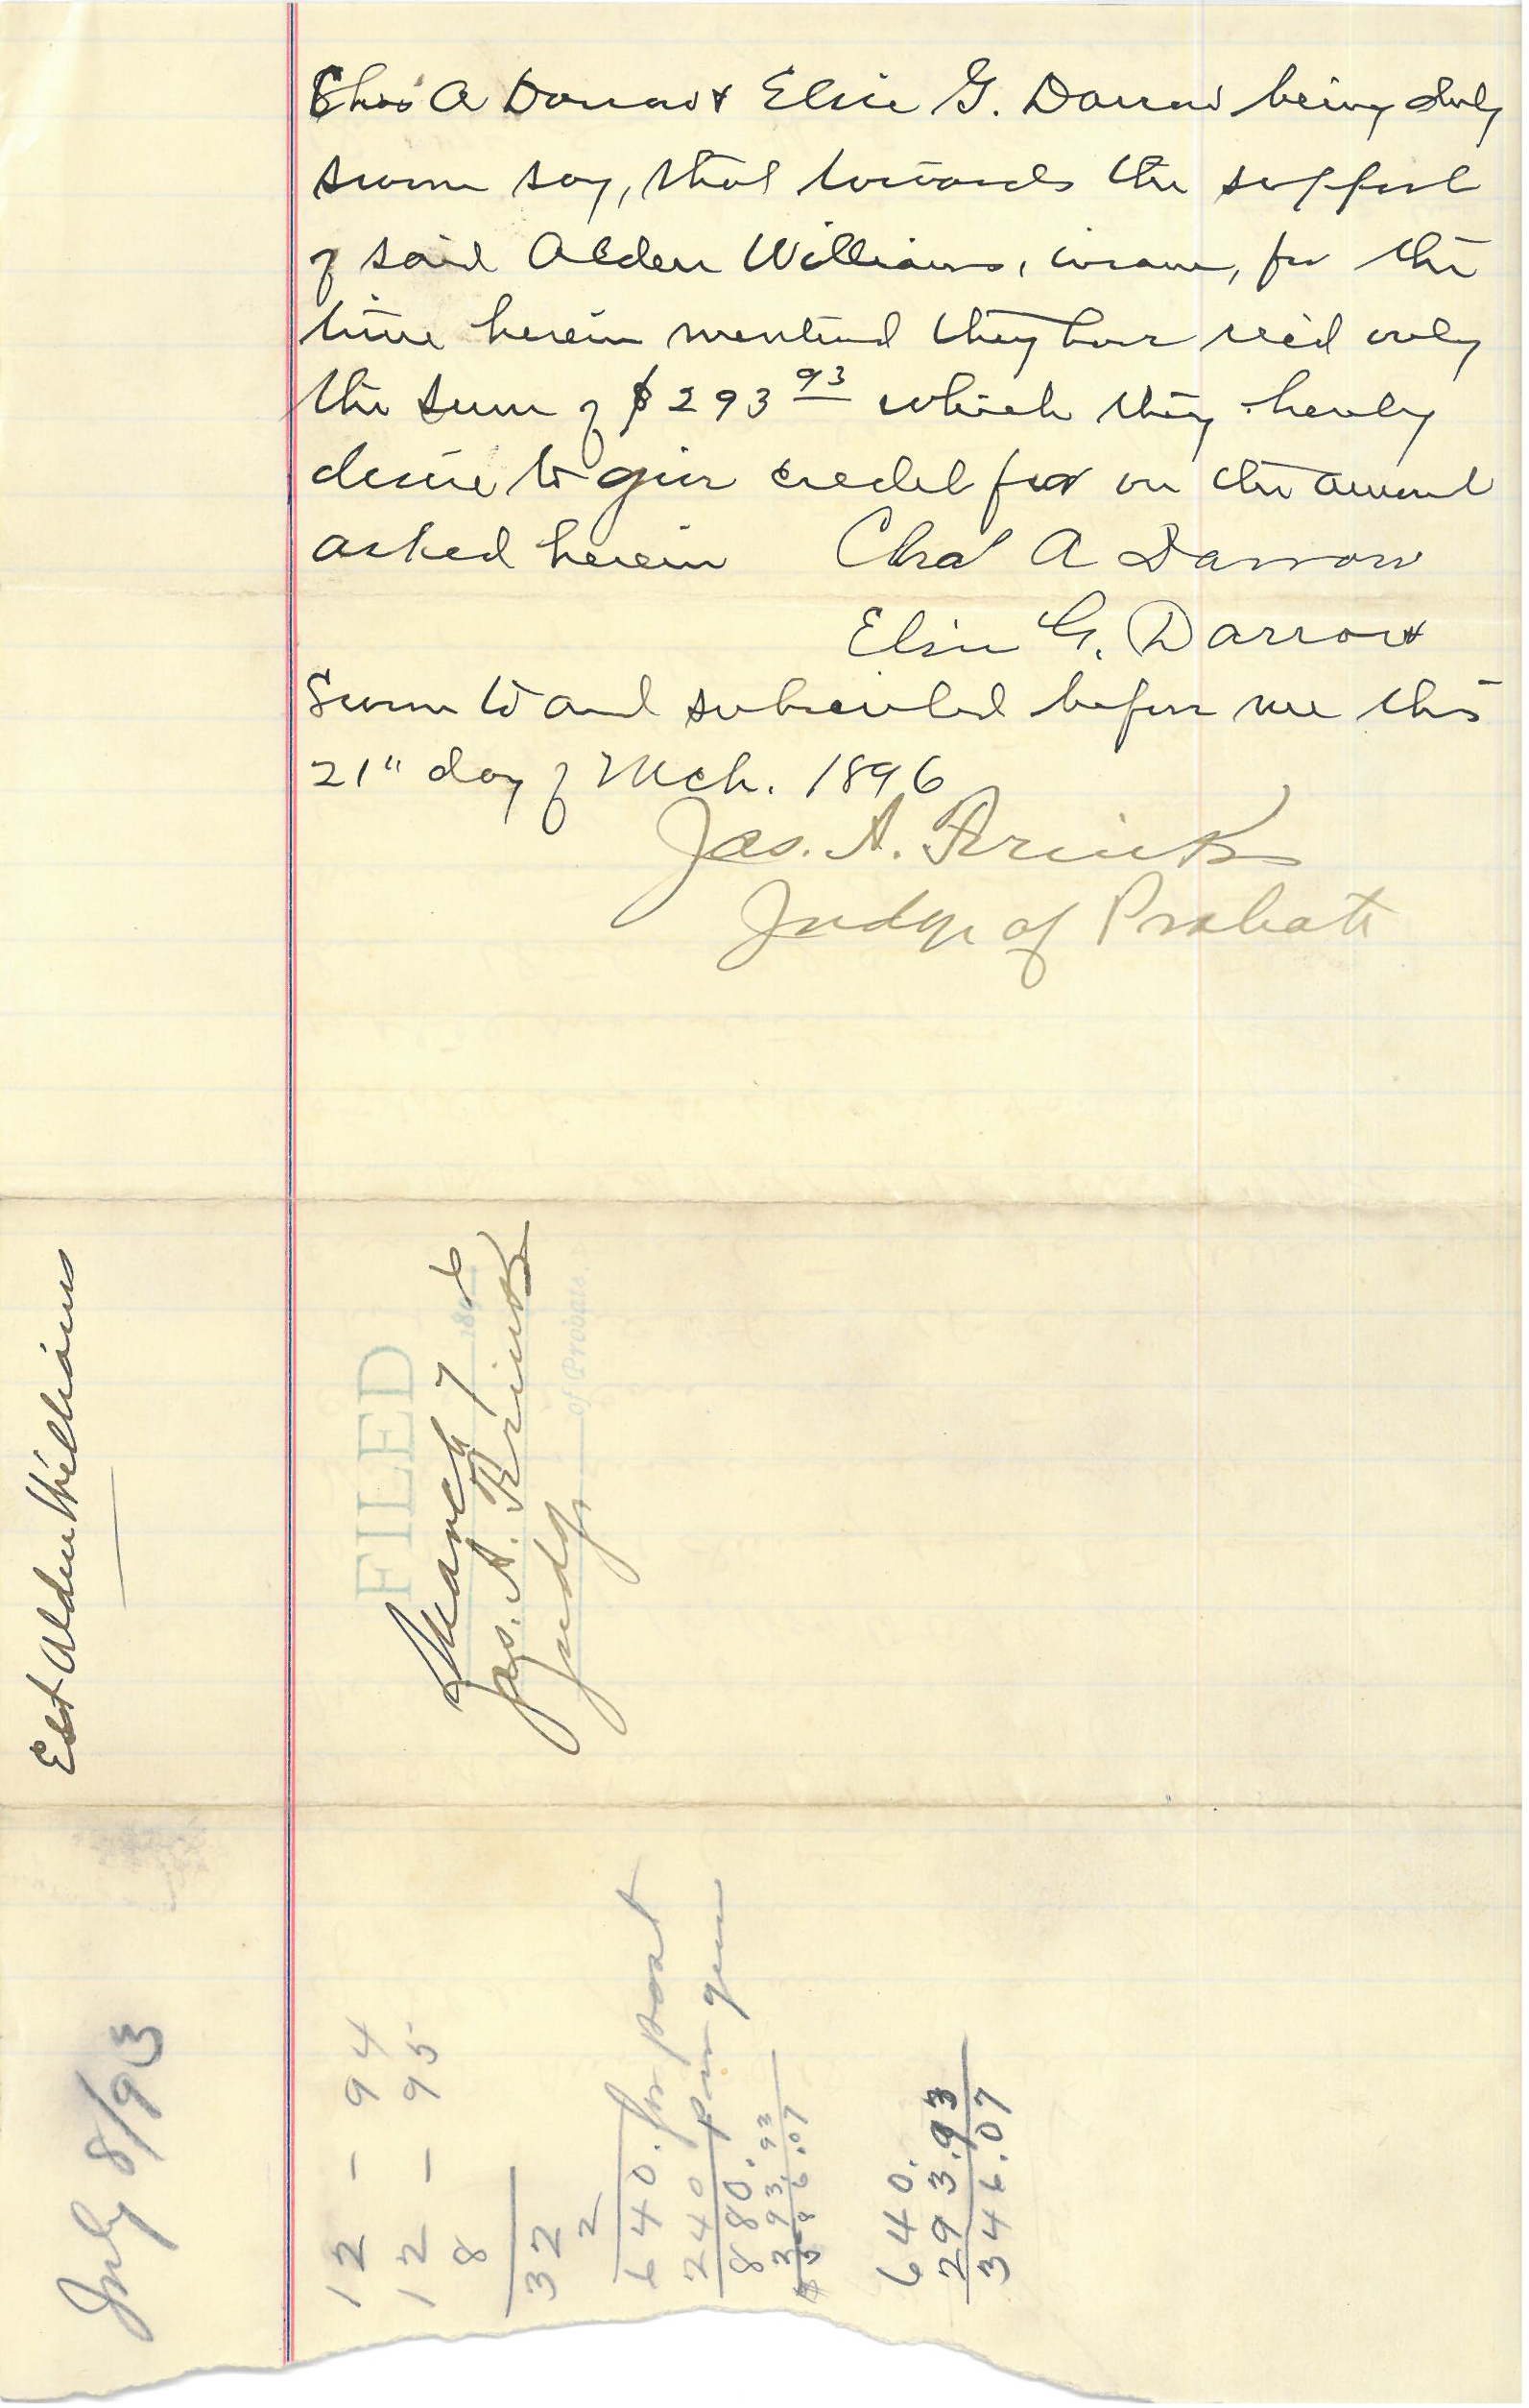 Chas A Darrow & Elsie G. Darrow being duly
sworn say, that towards the support
of said Alden Williams, insane, for the
time herein mentiond they have rec'd only
the sum of $293 93 which they hereby
desire to give credit for on the amount
asked herein Chas A Darrow
Elsie G. Darrow
Sworn to and subscribed before me this
21" day of Mch. 1896
Jas. A. Trinks
Judge of Probate
Est Alden Williams
FILED
March 7 1896
Jas. A. Trinks
Judge of Probate.
July 8/93
12 - 94
12 - 95
8
32
2
640. for past
240 per year
880.
293.93
586.07
640.
293.93
346.07